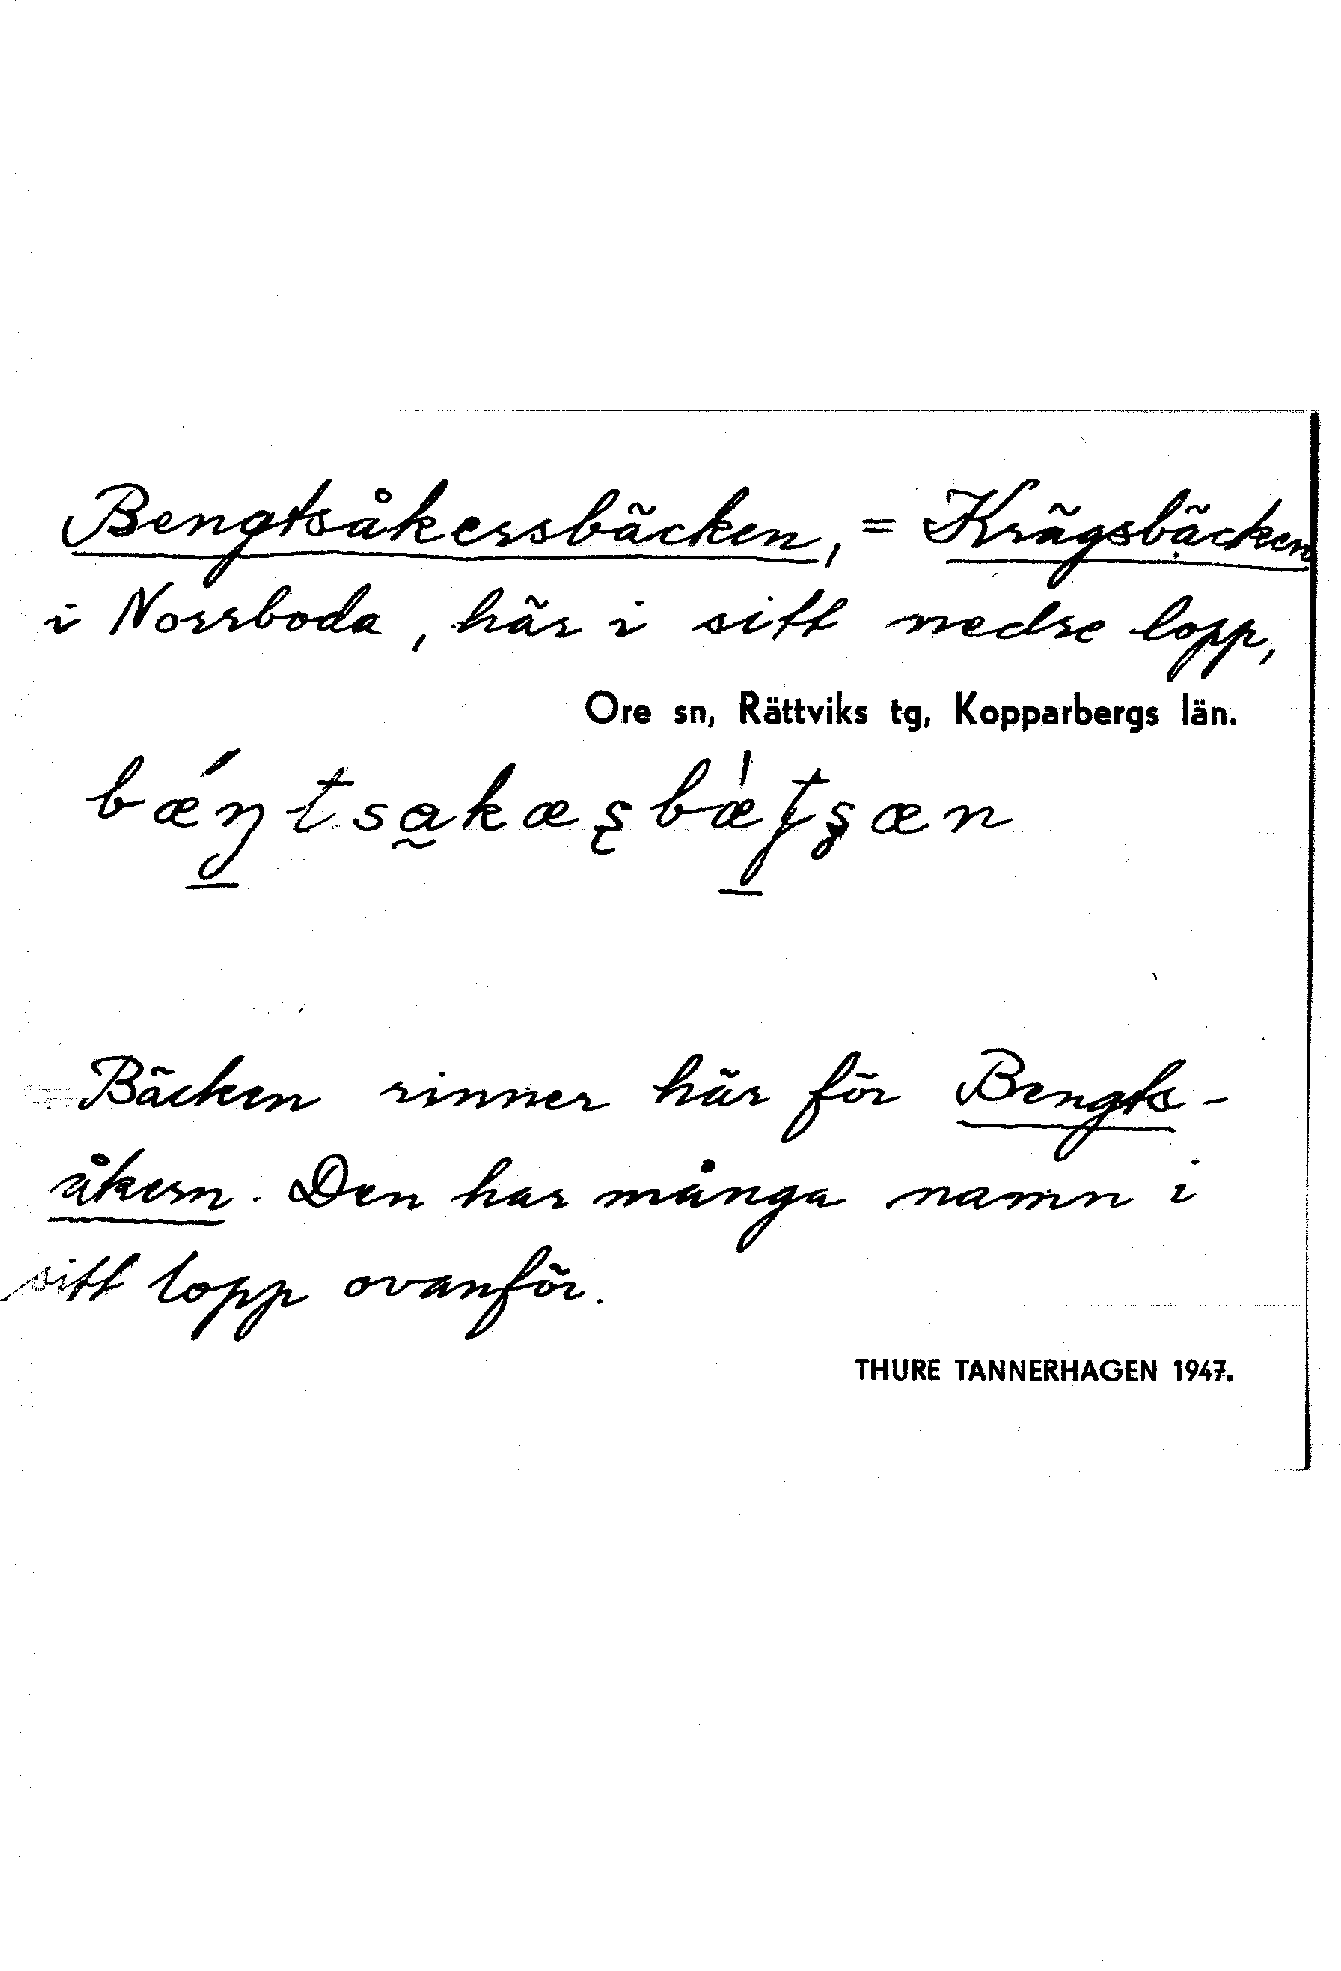 Bengtsåkersbäcken, = Krägsbäcken
i Norrboda, här i sitt nedre lopp,
Ore sn, Rättviks tg, Kopparbergs län.
bǽŋtsa̰kæʂbæ̀tʂæn
Bäcken rinner här för Bengts-
åkern. Den har många namn i
sitt lopp ovanför.
THURE TANNERHAGEN 1947.